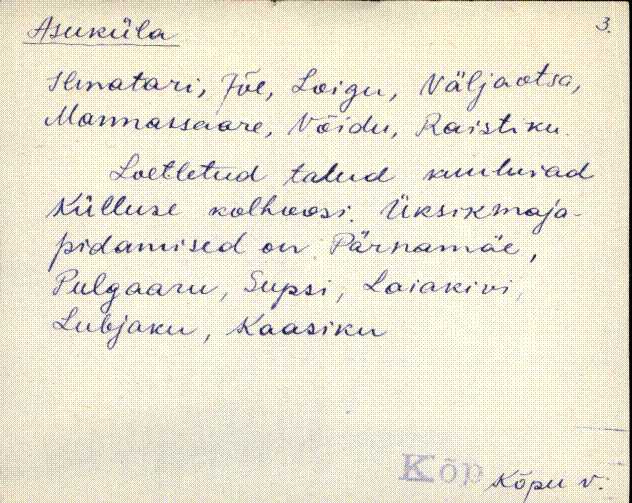 Asuküla 3.
Ilmatari, Jõe, Loigu, Väljaotsa,
Mannassaare, Võidu, Raistiku.
Loetletud talud kuuluvad
Külluse kolhoosi. Üksikmaja-
pidamised on Pärnamäe,
Pulgaaru, Supsi, Laiakivi,
Lubjaku, Kaasiku
Kõp Kõpu v.